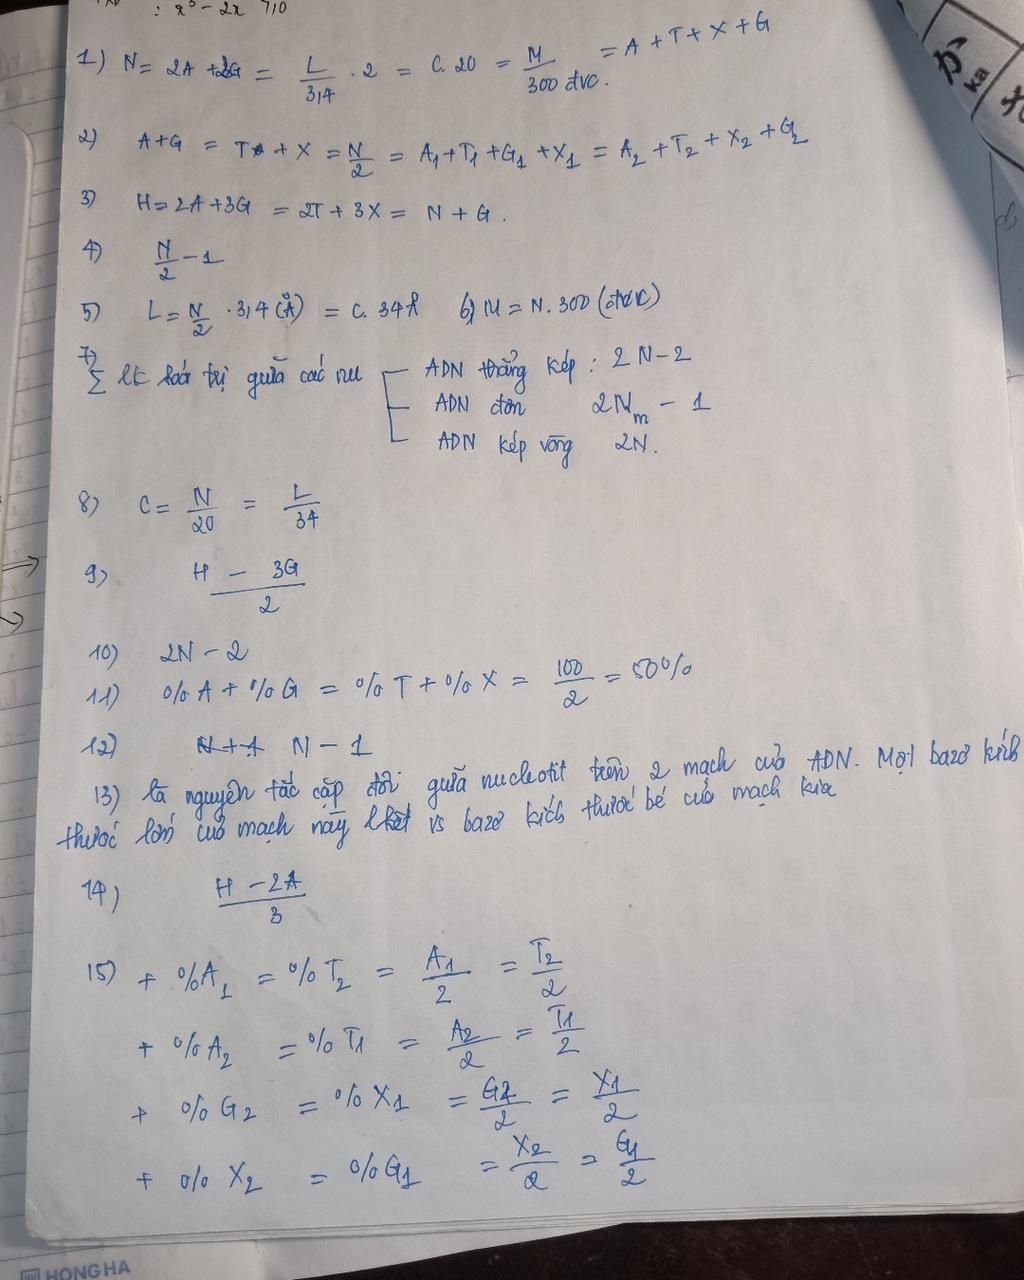 : x³ - 2x 710
1) N = 2A + 2G = L/3,4 . 2 = C. 20 = M/300 đvc. = A + T + X + G
2) A+G = T + X = N/2 = A₁+T₁+G₁+X₁ = A₂+T₂+X₂+G₂
3) H = 2A+3G = 2T + 3X = N + G.
4) N/2 - 1
5) L = N/2 . 3,4 (Å) = C. 34Å 6) M = N. 300 (đvc)
7) Σ lk hoá trị giữa các nu
ADN thẳng kép : 2N-2
ADN đơn 2Nm - 1
ADN kép vòng 2N.
8) C = N/20 = L/34
9) H - 3G / 2
10) 2N - 2
11) %A + %G = %T + %X = 100/2 = 50%
12) N+1 N - 1
13) là nguyên tắc cặp đôi giữa nucleotit trên 2 mạch của ADN. Một bazơ kích
thước lớn của mạch này lkết vs bazơ kích thước bé của mạch kia
14) H - 2A / 3
15) + %A₁ = %T₂ = A₁/2 = T₂/2
+ %A₂ = %T₁ = A₂/2 = T₁/2
+ %G₂ = %X₁ = G₂/2 = X₁/2
+ %X₂ = %G₁ = X₂/2 = G₁/2
HONG HA
か
ka